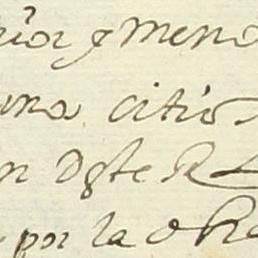 rior y meno
una citio
en Dste R
por la obra